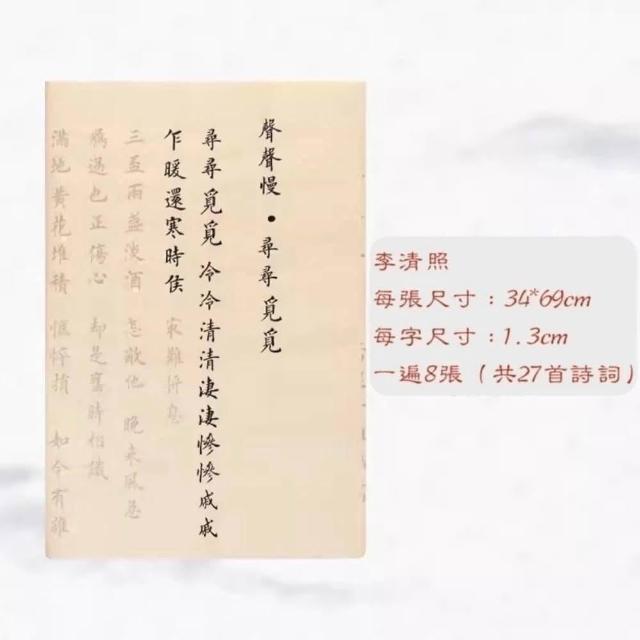 聲聲慢·尋尋覓覓
尋尋覓覓 冷冷清清 淒淒慘慘戚戚
乍暖還寒時候 最難將息
三盃兩盞淡酒 怎敵他 晚來風急
鴈過也正傷心 却是舊時相識
滿地黃花堆積 憔悴損 如今有誰
李清照
每張尺寸：34*69cm
每字尺寸：1.3cm
一遍8張（共27首詩詞）